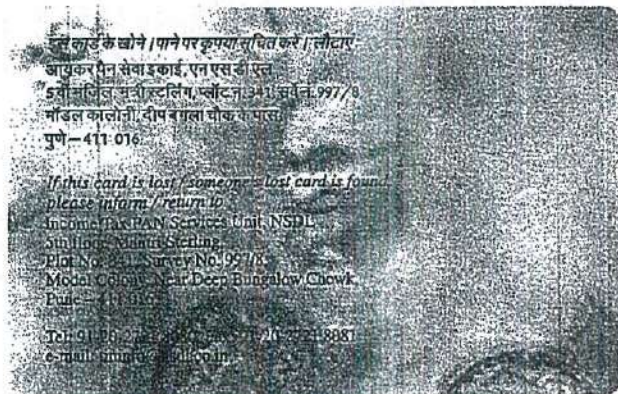 इस कार्ड के खोने / पाने पर कृपया सूचित करें / लौटाएं
आयकर पैन सेवा इकाई, एन एस डी एल
5वीं मंजिल, मंत्री स्टर्लिंग, प्लॉट नं. 341, सर्वे नं. 997/8,
मॉडल कालोनी, दीप बंगला चौक के पास,
पुणे – 411 016.
If this card is lost / someone's lost card is found,
please inform / return to :
Income Tax PAN Services Unit, NSDL
5th floor, Mantri Sterling,
Plot No. 341, Survey No. 997/8,
Model Colony, Near Deep Bungalow Chowk,
Pune – 411 016.
Tel: 91-20-2721 8081
e-mail: